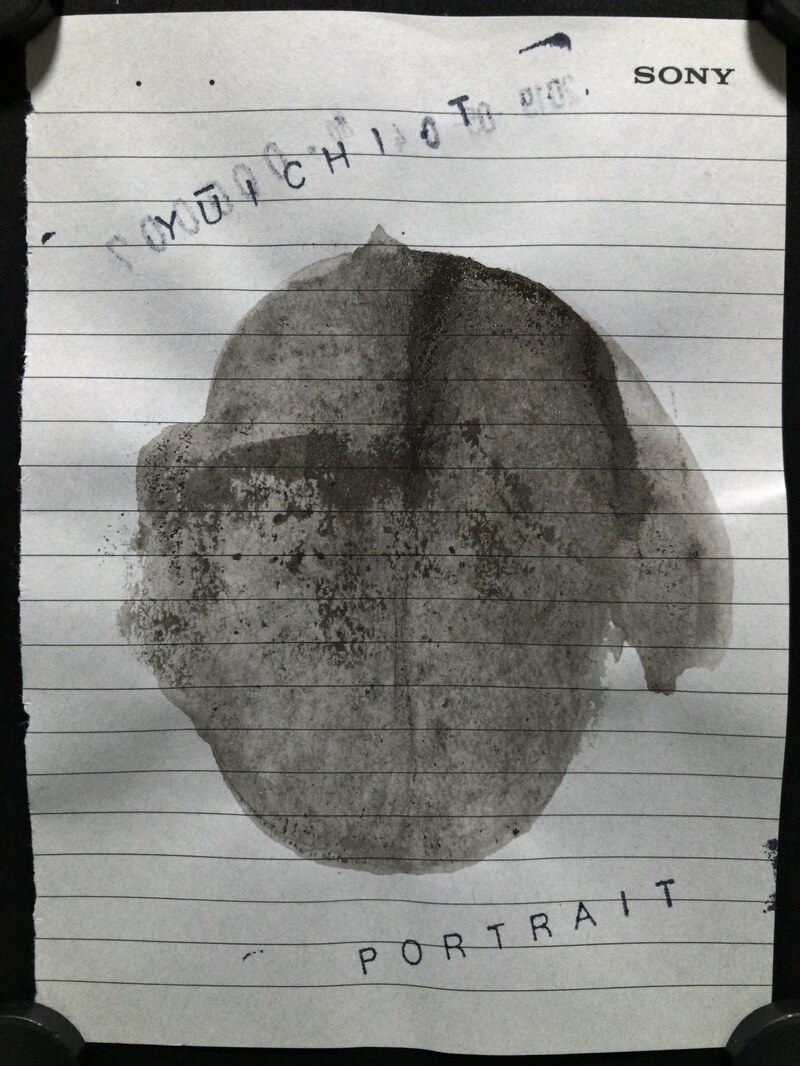 SONY
YŪICHI OT
PORTRAIT